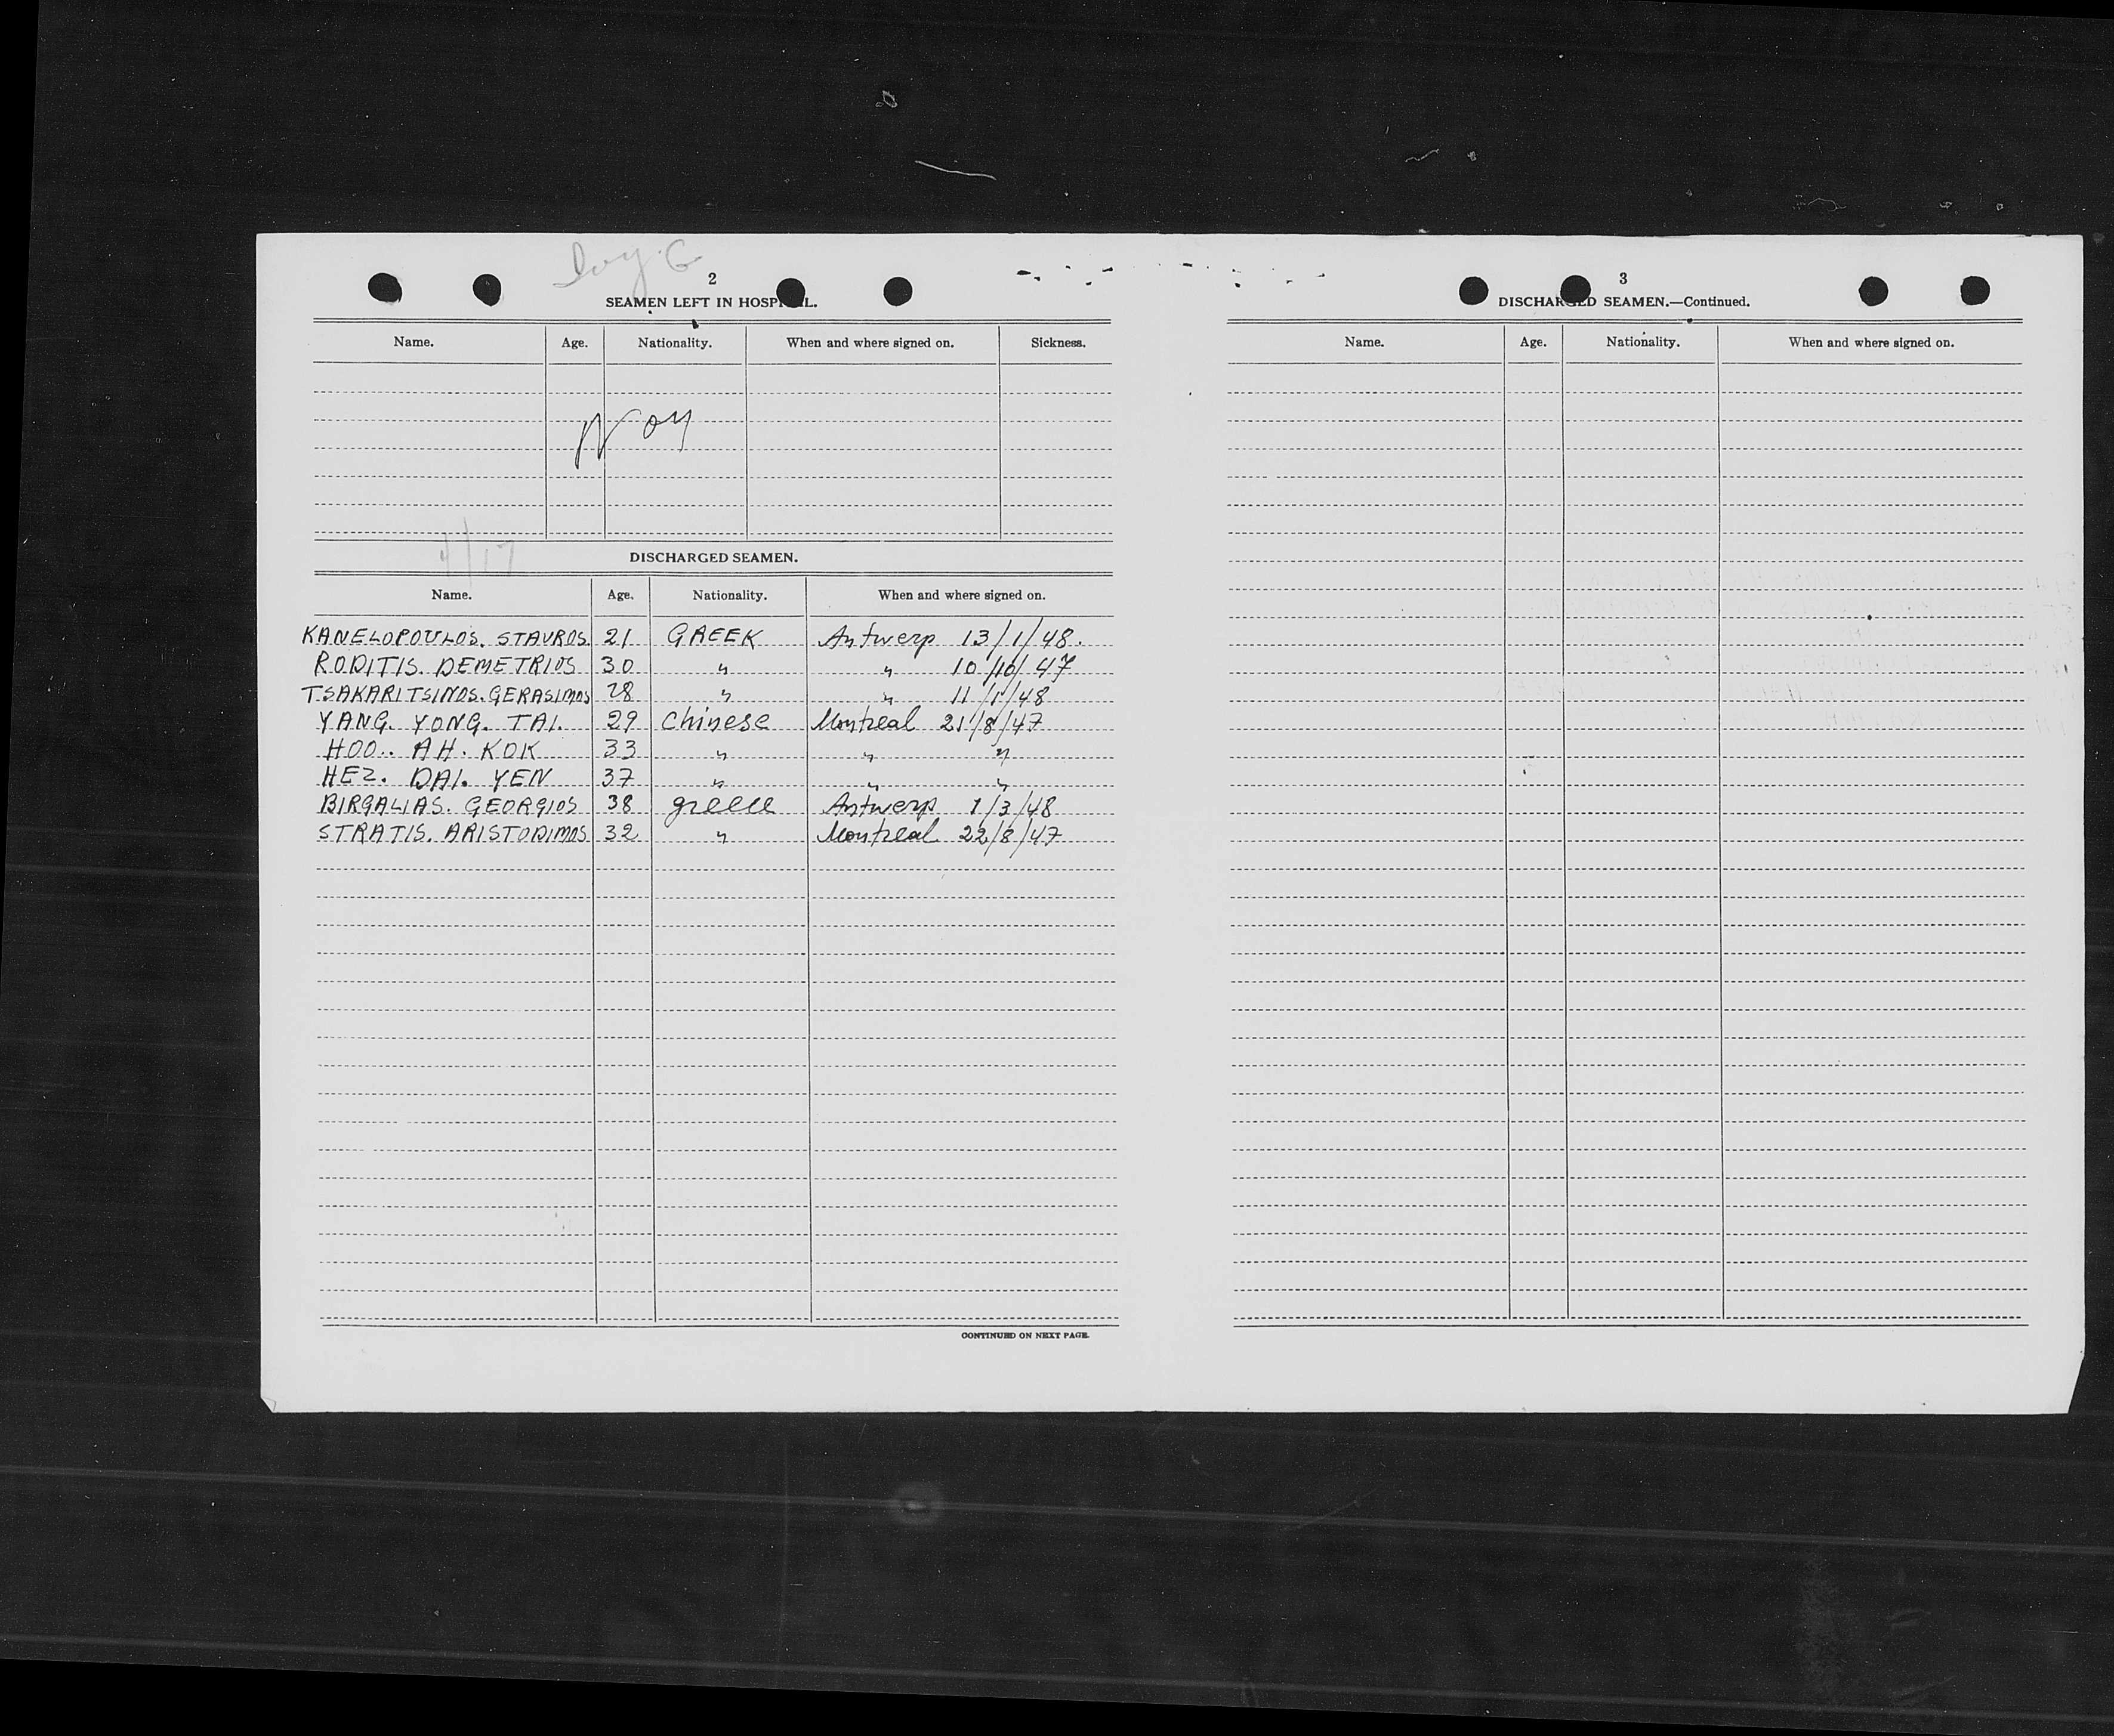 2
SEAMEN LEFT IN HOSP L.
Name. Age. Nationality. When and where signed on. Sickness.
4/17
DISCHARGED SEAMEN.
Name. Age. Nationality. When and where signed on.
KANELOPOULOS. STAVROS. 21 GREEK Antwerp 13/1/48.
RODITIS. DEMETRIOS 30 " " 10/10/47
TSAKARITSINOS. GERASIMOS 28 " " 11/1/48
YANG. YONG. TAI. 29 Chinese Montreal 21/8/47
HOO.. AH. KOK 33 " " "
HEZ. DAI. YEN 37 " " "
BIRGALIAS. GEORGIOS 38 greece Antwerp 1/3/48
STRATIS. ARISTODIMOS 32 " Montreal 22/8/47
CONTINUED ON NEXT PAGE.
3
DISCHARGED SEAMEN.—Continued.
Name. Age. Nationality. When and where signed on.